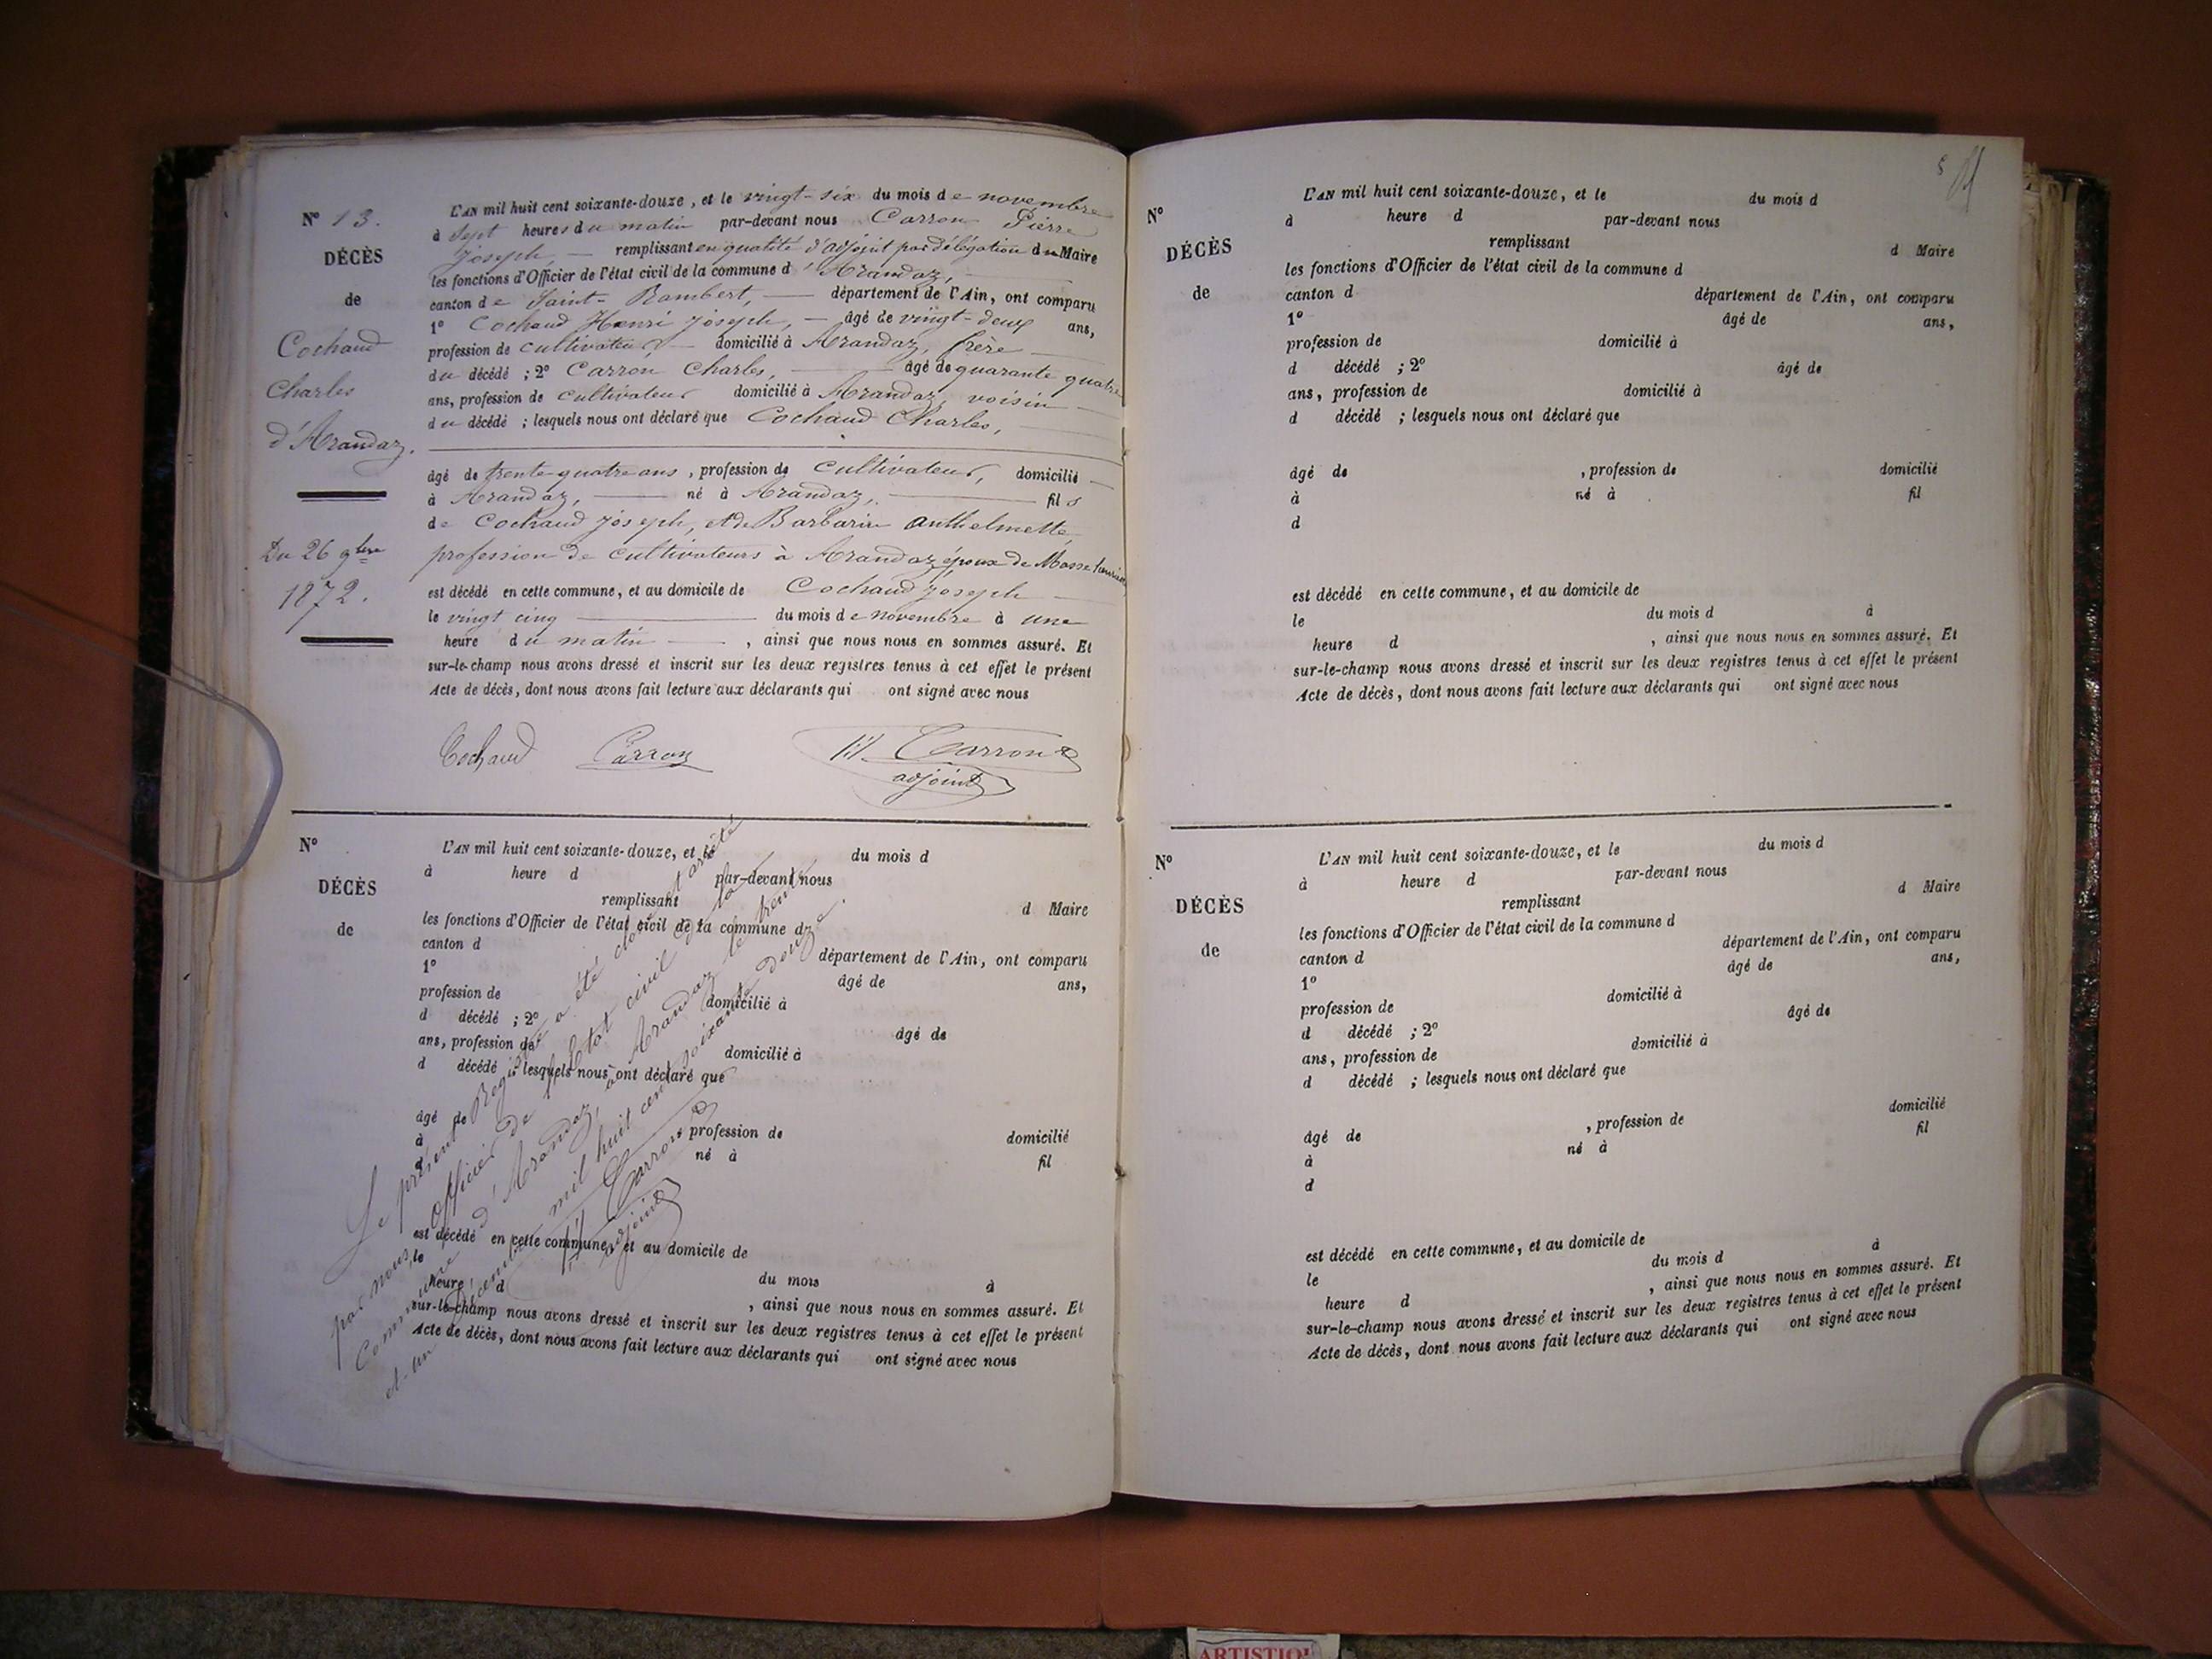 N° 13.
DÉCÈS
de
Cochaud
Charles
d'Arandaz.
Du 26 9bre
1872.
L'AN mil huit cent soixante-douze, et le vingt-six du mois de novembre
à sept heures du matin par-devant nous Carron Pierre
Joseph, remplissant en qualité d'adjoint par délégation du Maire
les fonctions d'Officier de l'état civil de la commune d'Arandaz,
canton de Saint-Rambert, département de l'Ain, ont comparu
1° Cochaud Henri Joseph, âgé de vingt-deux ans,
profession de cultivateur, domicilié à Arandaz, frère
du décédé ; 2° Carron Charles, âgé de quarante quatre
ans, profession de cultivateur domicilié à Arandaz, voisin
du décédé ; lesquels nous ont déclaré que Cochaud Charles,
âgé de trente-quatre ans, profession de cultivateur, domicilié
à Arandaz, né à Arandaz, fils
de Cochaud Joseph, et de Barbarin Anthelmette,
profession de cultivateurs à Arandaz époux de Masse
est décédé en cette commune, et au domicile de Cochaud Joseph
le vingt cinq du mois de novembre à une
heure du matin, ainsi que nous nous en sommes assuré. Et
sur-le-champ nous avons dressé et inscrit sur les deux registres tenus à cet effet le présent
Acte de décès, dont nous avons fait lecture aux déclarants qui ont signé avec nous
Cochaud Carron Carron
adjoint
N°
DÉCÈS
de
L'AN mil huit cent soixante-douze, et le du mois d
à heure d par-devant nous
remplissant d Maire
les fonctions d'Officier de l'état civil de la commune d
canton d département de l'Ain, ont comparu
1° âgé de ans,
profession de domicilié à
d décédé ; 2° âgé de
ans, profession de domicilié à
d décédé ; lesquels nous ont déclaré que
âgé de , profession de domicilié
à né à fil
d
est décédé en cette commune, et au domicile de
le du mois à
heure d , ainsi que nous nous en sommes assuré. Et
sur-le-champ nous avons dressé et inscrit sur les deux registres tenus à cet effet le présent
Acte de décès, dont nous avons fait lecture aux déclarants qui ont signé avec nous
Le présent Registre a été clos et arrêté
par nous, Officier de l'état civil de la
commune d'Arandaz, à Arandaz le trente
et-un Décembre mil huit cent soixante douze.
Carron
adjoint
N°
DÉCÈS
de
L'AN mil huit cent soixante-douze, et le du mois d
à heure d par-devant nous
remplissant d Maire
les fonctions d'Officier de l'état civil de la commune d
canton d département de l'Ain, ont comparu
1° âgé de ans,
profession de domicilié à
d décédé ; 2° âgé de
ans, profession de domicilié à
d décédé ; lesquels nous ont déclaré que
âgé de , profession de domicilié
à né à fil
d
est décédé en cette commune, et au domicile de
le du mois d à
heure d , ainsi que nous nous en sommes assuré. Et
sur-le-champ nous avons dressé et inscrit sur les deux registres tenus à cet effet le présent
Acte de décès, dont nous avons fait lecture aux déclarants qui ont signé avec nous
N°
DÉCÈS
de
L'AN mil huit cent soixante-douze, et le du mois d
à heure d par-devant nous
remplissant d Maire
les fonctions d'Officier de l'état civil de la commune d
canton d département de l'Ain, ont comparu
1° âgé de ans,
profession de domicilié à
d décédé ; 2° âgé de
ans, profession de domicilié à
d décédé ; lesquels nous ont déclaré que
âgé de , profession de domicilié
à né à fil
d
est décédé en cette commune, et au domicile de
le du mois d à
heure d , ainsi que nous nous en sommes assuré. Et
sur-le-champ nous avons dressé et inscrit sur les deux registres tenus à cet effet le présent
Acte de décès, dont nous avons fait lecture aux déclarants qui ont signé avec nous